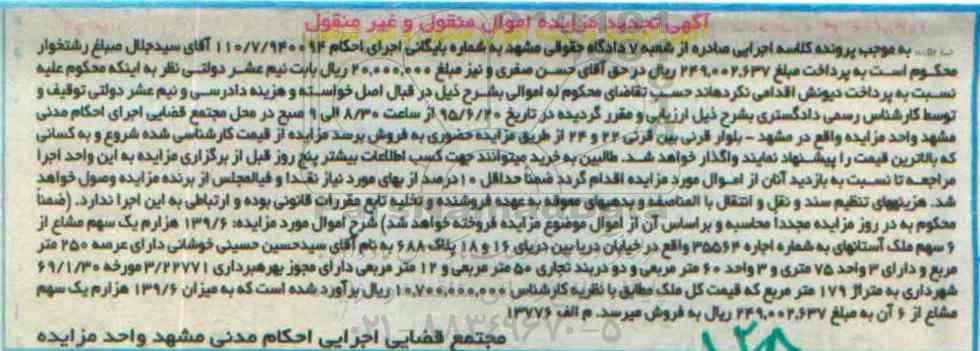 آگهی تجدید مزایده اموال منقول و غیر منقول
به موجب پرونده کلاسه اجرایی صادره از شعبه ۷ دادگاه حقوقی مشهد به شماره بایگانی اجرای احکام ۱۱۰/۷/۹۴۰۰۹۴ آقای سیدجلال صباغ رشتخوار
محکوم است به پرداخت مبلغ ۲۴۹,۰۰۲,۶۳۷ ریال در حق آقای حسن صفری و نیز مبلغ ۲۰,۰۰۰,۰۰۰ ریال بابت نیم عشر دولتی نظر به اینکه محکوم علیه
نسبت به پرداخت دیونش اقدامی نکرده‌اند حسب تقاضای محکوم له اموالی بشرح ذیل در قبال اصل خواسته و هزینه دادرسی و نیم عشر دولتی توقیف و
توسط کارشناس رسمی دادگستری بشرح ذیل ارزیابی و مقرر گردیده در تاریخ ۹۵/۶/۲۰ از ساعت ۸/۳۰ الی ۹ صبح در محل مجتمع قضایی اجرای احکام مدنی
مشهد واحد مزایده واقع در مشهد - بلوار قرنی بین قرنی ۲۲ و ۲۴ از طریق مزایده حضوری به فروش برسد مزایده از قیمت کارشناسی شده شروع و به کسانی
که بالاترین قیمت را پیشنهاد نمایند واگذار خواهد شد. طالبین به خرید میتوانند جهت کسب اطلاعات بیشتر پنج روز قبل از برگزاری مزایده به این واحد اجرا
مراجعه تا نسبت به بازدید آنان از اموال مورد مزایده اقدام گردد ضمناً حداقل ۱۰درصد از بهای مورد نیاز نقدا و فی‌المجلس از برنده مزایده وصول خواهد
شد. هزینههای تنظیم سند و نقل و انتقال با المناصفه و بدهیهای معوقه به عهده فروشنده و تخلیه تابع مقررات قانونی بوده و ارتباطی به این اجرا ندارد. (ضمناً
محکوم به در روز مزایده مجدداً محاسبه و براساس آن از اموال موضوع مزایده فروخته خواهد شد) شرح اموال مورد مزایده: ۱۳۹/۶ هزارم یک سهم مشاع از
۶ سهم ملک آستانهای به شماره اجاره ۳۵۵۶۴ واقع در خیابان دریا بین دریای ۱۶ و ۱۸ پلاک ۶۸۸ به نام آقای سیدحسین حسینی خوشانی دارای عرصه ۲۵۰ متر
مربع و دارای ۳ واحد ۷۵ متری و ۳ واحد ۶۰ متر مربعی و دو دربند تجاری ۵۰ متر مربعی و ۱۲ متر مربعی دارای مجوز بهره‌برداری ۳/۲۲۷۷۱ مورخه ۶۹/۱/۳۰
شهرداری به متراژ ۱۷۹ متر مربع که قیمت کل ملک مطابق با نظریه کارشناس ۱۰,۷۰۰,۰۰۰,۰۰۰ ریال برآورد شده است که به میزان ۱۳۹/۶ هزارم یک سهم
مشاع از ۶ آن به مبلغ ۲۴۹,۰۰۲,۶۳۷ ریال به فروش میرسد. م الف ۱۳۷۷۶
مجتمع قضایی اجرایی احکام مدنی مشهد واحد مزایده
۰۲۱-۸۸۳۴۹۶۷۰-۵